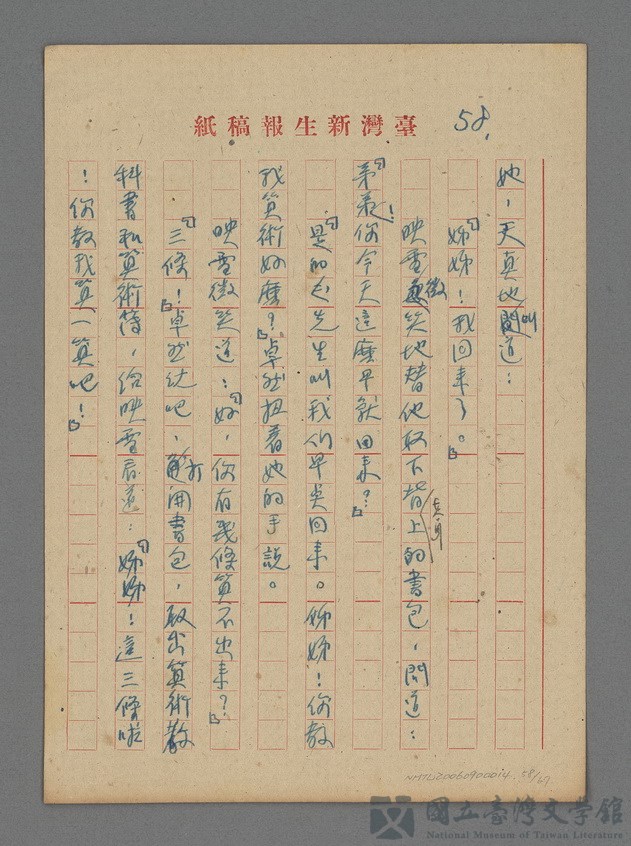 58.
臺灣新生報稿紙
她，天真地叫道：
「姊姊！我回来了。」
映雪微笑地替他取下背上的書包，問道：
「弟弟！你今天這麼早就回来？」
「是的，先生叫我们早些回来。姊姊！你教
我算術好麼？」卓然扭着她的手說。
映雪微笑道：「好，你有幾條算不出来？」
「三條！」卓然说吧，打開書包，取出算術教
科書和算術簿，给映雪看道：「姊姊！這三條啦
！你教我算一算吧！」
NMTL20060900014 58/67
國立臺灣文學館
National Museum of Taiwan Literature